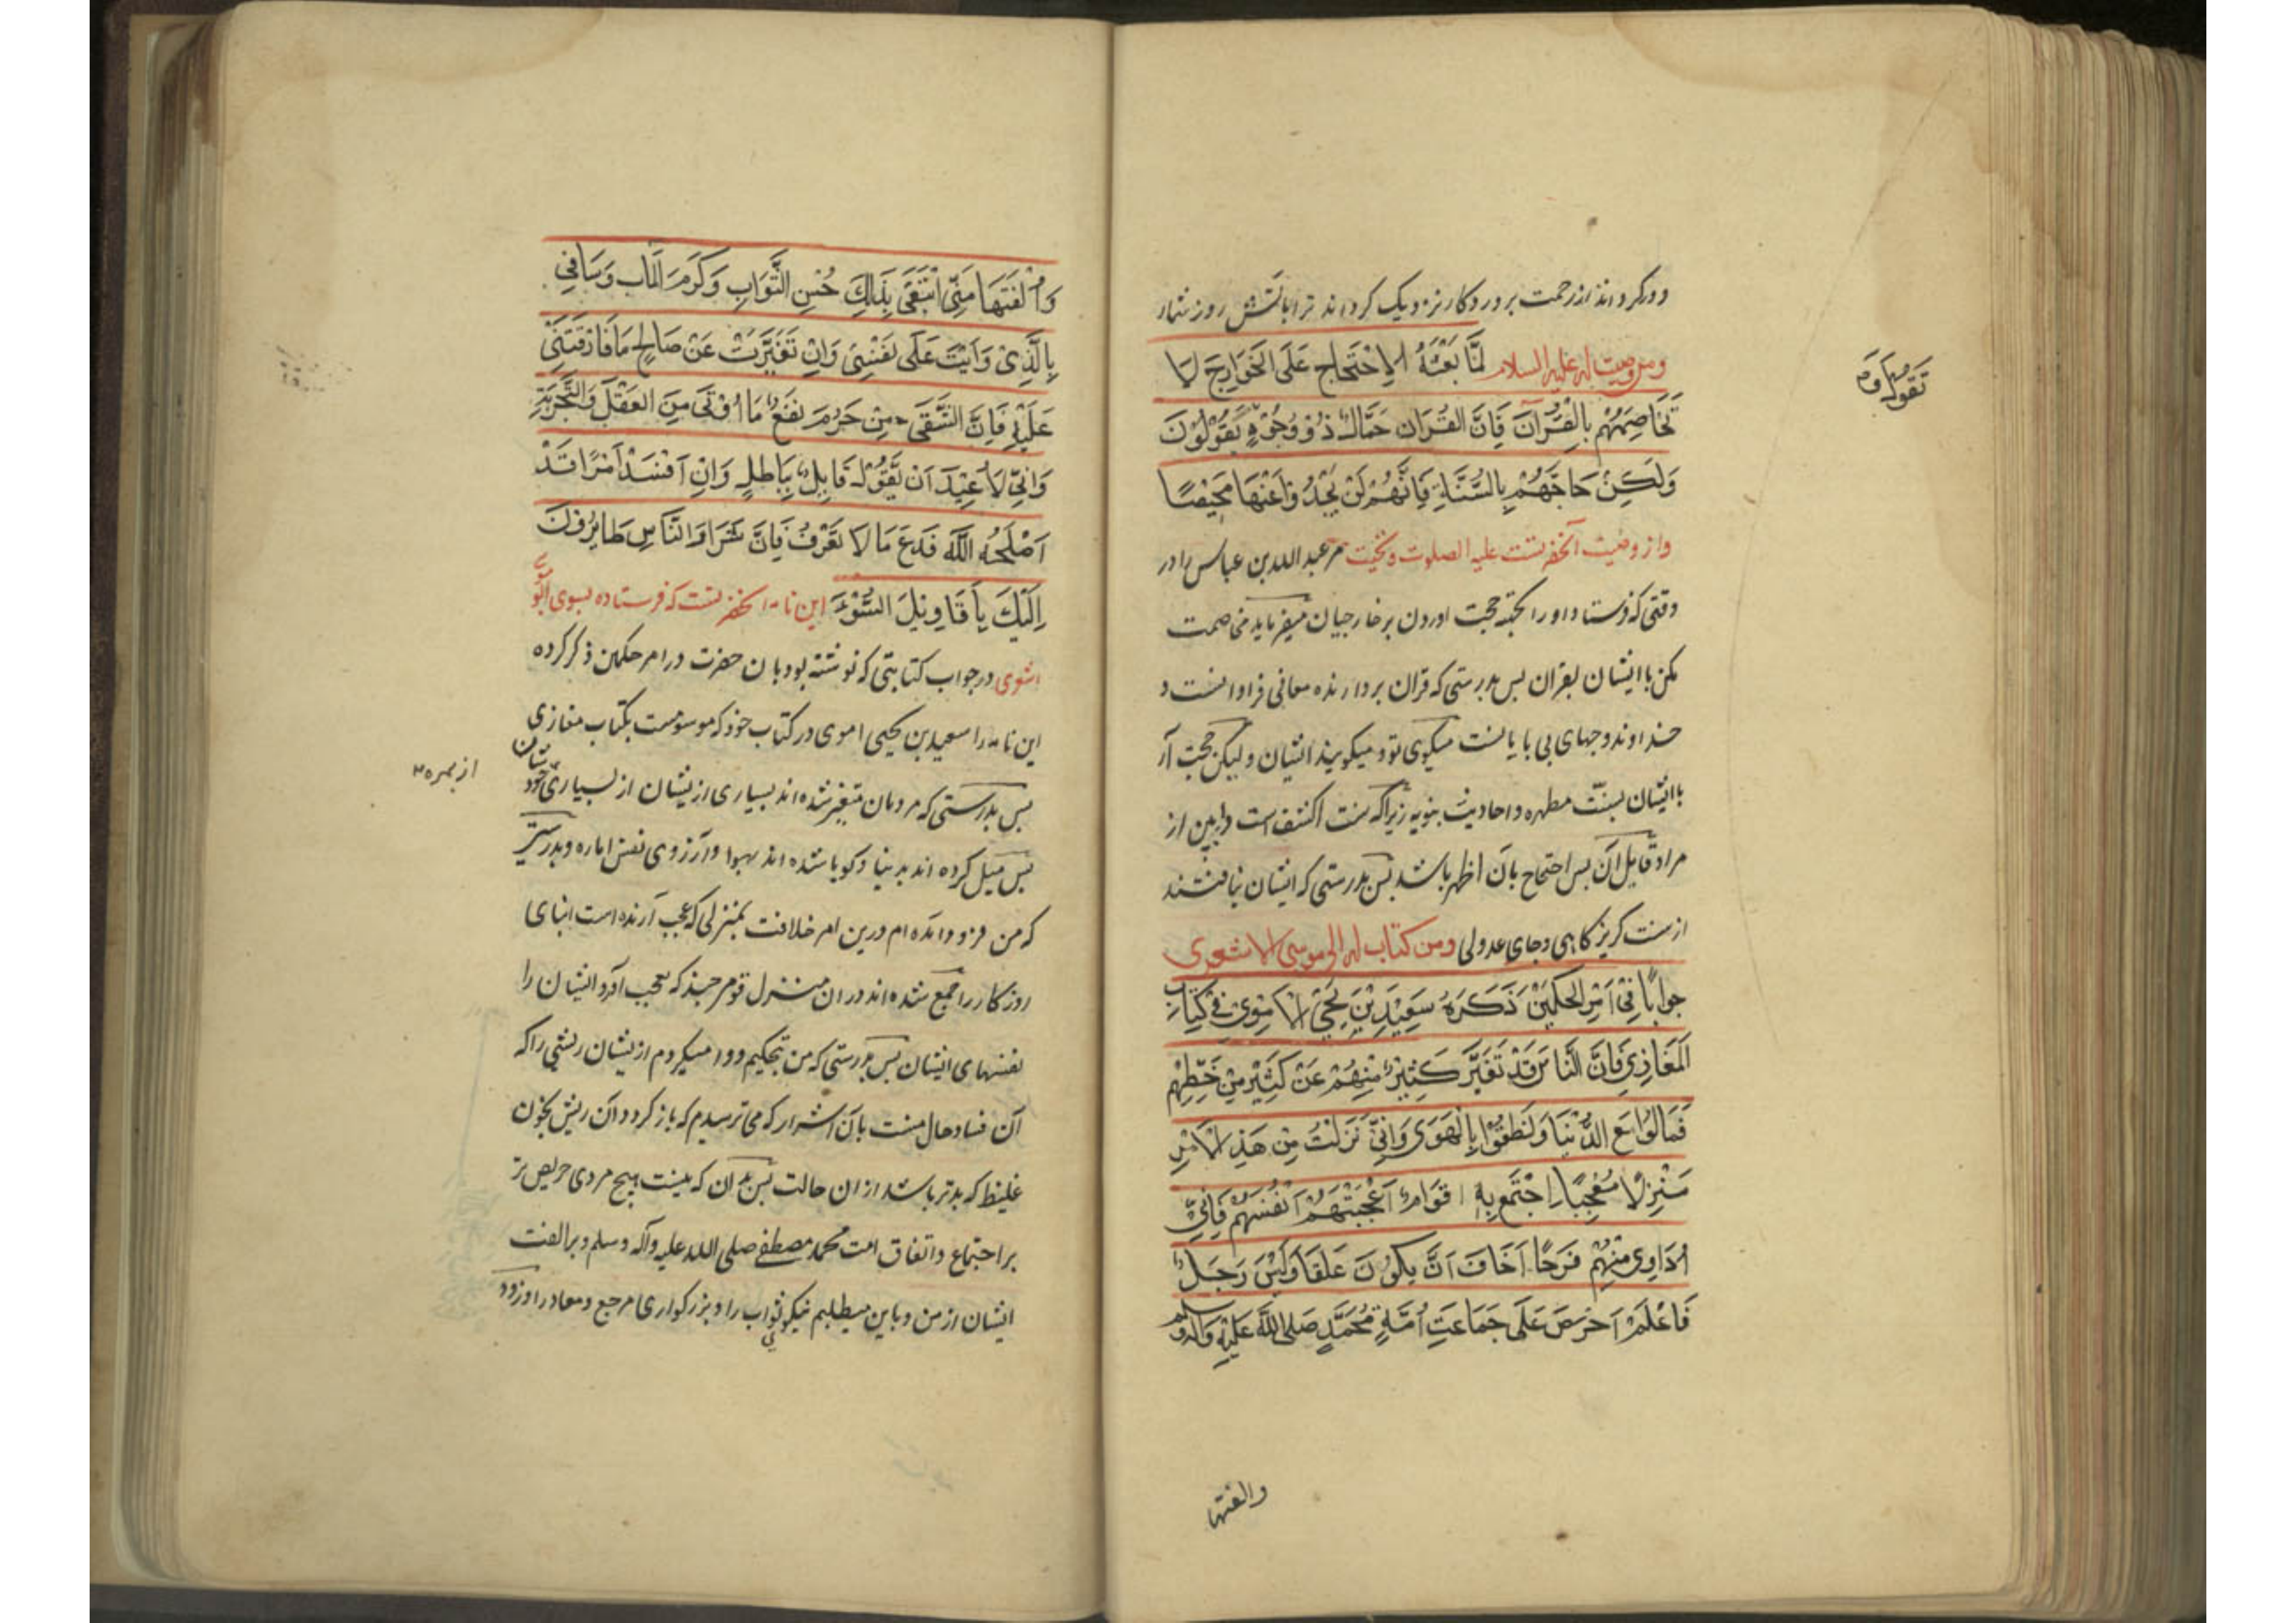 دور کرداند از رحمت پروردکار نزدیک کرداند ترا باتش روز شمار
ومن وصیت له علیه السلام لَمَّا بَعَثَهُ الاِحْتِجاج عَلَی الخَوَارِجَ لَا
تُخَاصِمْهُمْ بِالْقُرْآنَ فَاِنَّ القُرآن حَمَّالٌ ذُوْ وُجُوْهٍ یَقُوْلُوْنَ
تَقُولُ وَ
وَلَکِنْ حَاجِّهُمْ بِالسُّنَّةِ فَاِنَّهُمْ لَنْ یَجِدُوْا عَنْهَا مَحِیْصًا
واز وصیت آنحضرتست علیه الصلوت و تحیت مر عبد الله بن عباس را در
وقتی که فرستاد او را بجهة حجت اوردن بر خارجیان میفرماید مخاصمت
مکن با ایشان بقران بس بدرستی که قران بردارنده معانی فراوانست و
خداوند وجهای بی بایانست میکوی تو و میکویند ایشان ولیکن حجت آر
با ایشان بسنّت مطهره و احادیث نبویه زیرا که سنت اکشف است و ابین از
مراد قایل آن بس احتجاج بان اظهر باشد بس بدرستی که ایشان نیافتند
از سنت کریزکاهی و جای عدولی ومن کتاب له الی موسی الاشعری
جوابًا فِیْ اَمْرِ الحَکَمَیْنِ ذَکَرَهُ سَعِیْدِ بْنِ یَحْیَی الاَمَوِیْ فِیْ کِتَابِ
المَغَازِیْ فَاِنَّ النَّاسَ قَدْ تَغَیَّرَ کَثِیْرٌ مِنْهُمْ عَنْ کَثِیْرٍ مِنْ حَظِّهِمْ
فَمَالُوْا مَعَ الدُّنْیَا وَنَطَقُوْا بِالْهَوَی وَاِنِّیْ نَزَلْتُ مِنْ هَذِ الاَمْرِ
مَنْزِلًا مُعْجِبًا اِجْتَمَعَ بِهِ اَقْوَامٌ اَعْجَبَتْهُمْ اَنْفُسُهُمْ فَاِنِّیْ
اُدَاوِیْ مِنْهُمْ قَرحًا اَخَافَ اَنَّ یَکُوْنَ عَلَقًا وَلَیْسَ رَجُلٌ
فَاعْلَمْ اَحْرَصَ عَلَی جَمَاعَتِ اُمَّةِ مُحَمَّدٍ صَلی اللّه عَلَیْهِ وَاله وسلم
والفتها
وَاُلْفَتَهَا مِنِّیْ اَبْتَغِیْ بِذَلِکَ حُسْنَ الثَّوَابِ وَکَرَمَ المَاب وَسَافِی
بِالَّذِیْ وَاَیْتُ عَلَی نَفْسِیْ وَاِنْ تَغَیَّرَتْ عَنْ صَالِحِ مَا فَارَقْتَنِیْ
عَلَیْهِ فَاِنَّ الشَّقِیَ مَنْ حَرُمَ نَفْعَ مَا اُوْتِیَ مِنَ العَقْلِ وَالتَّجْرِبَةِ
وَاِنِّی لَاَعْبَدَ اَنْ یَقُوْلَ قَایِلٌ بِبَاطِلٍ وَاِنْ اُفْسِدْ اَمْرًا قَدْ
اَصْلَحَهُ اللَّه فَدَعْ مَا لَا تَعْرِفُ فَاِنَّ شَرَارَ النَّاسِ طَایِرُوْنَ
اِلَیْکَ بِاَقَاوِیْلَ السُّوْءِ این نامه انحضرتست که فرستاده بسوی ابو موسی
اشعری در جواب کتابتی که نوشته بود بان حضرت در امر حکمین ذکر کرده
این نامه را سعید بن یحیی اموی در کتاب خود که موسومست بکتاب مغازی
بس بدرستی که مردمان متغیر شده اند بسیاری از یشان از بسیاری خودشان
از بهره
بس میل کرده اند بدنیا و کویا شده اند بهوا و آرزوی نفس اماره و بدرستی
که من فرود آمده ام درین امر خلافت بمنزلی که عجب آرنده است ابنای
روزکار را جمع شده اند در ان منزل قوم چند که بعجب آورد ایشان را
نفسهای ایشان بس بدرستی که من بتحکیم دوا میکردم از یشان ریشی را که
آن فساد حال منست بان اشرار که می ترسیدم که باز کردد آن ریش بخون
غلیظ که بدتر باشد از ان حالت بس بدان که نیست هیچ مردی حریص تر
بر اجتماع و اتفاق امت محمد مصطفی صلی الله علیه وآله وسلم و بر الفت
ایشان از من و باین میطلبم نیکوئی ثواب را و بزرکواری مرجع و معاد را و زود